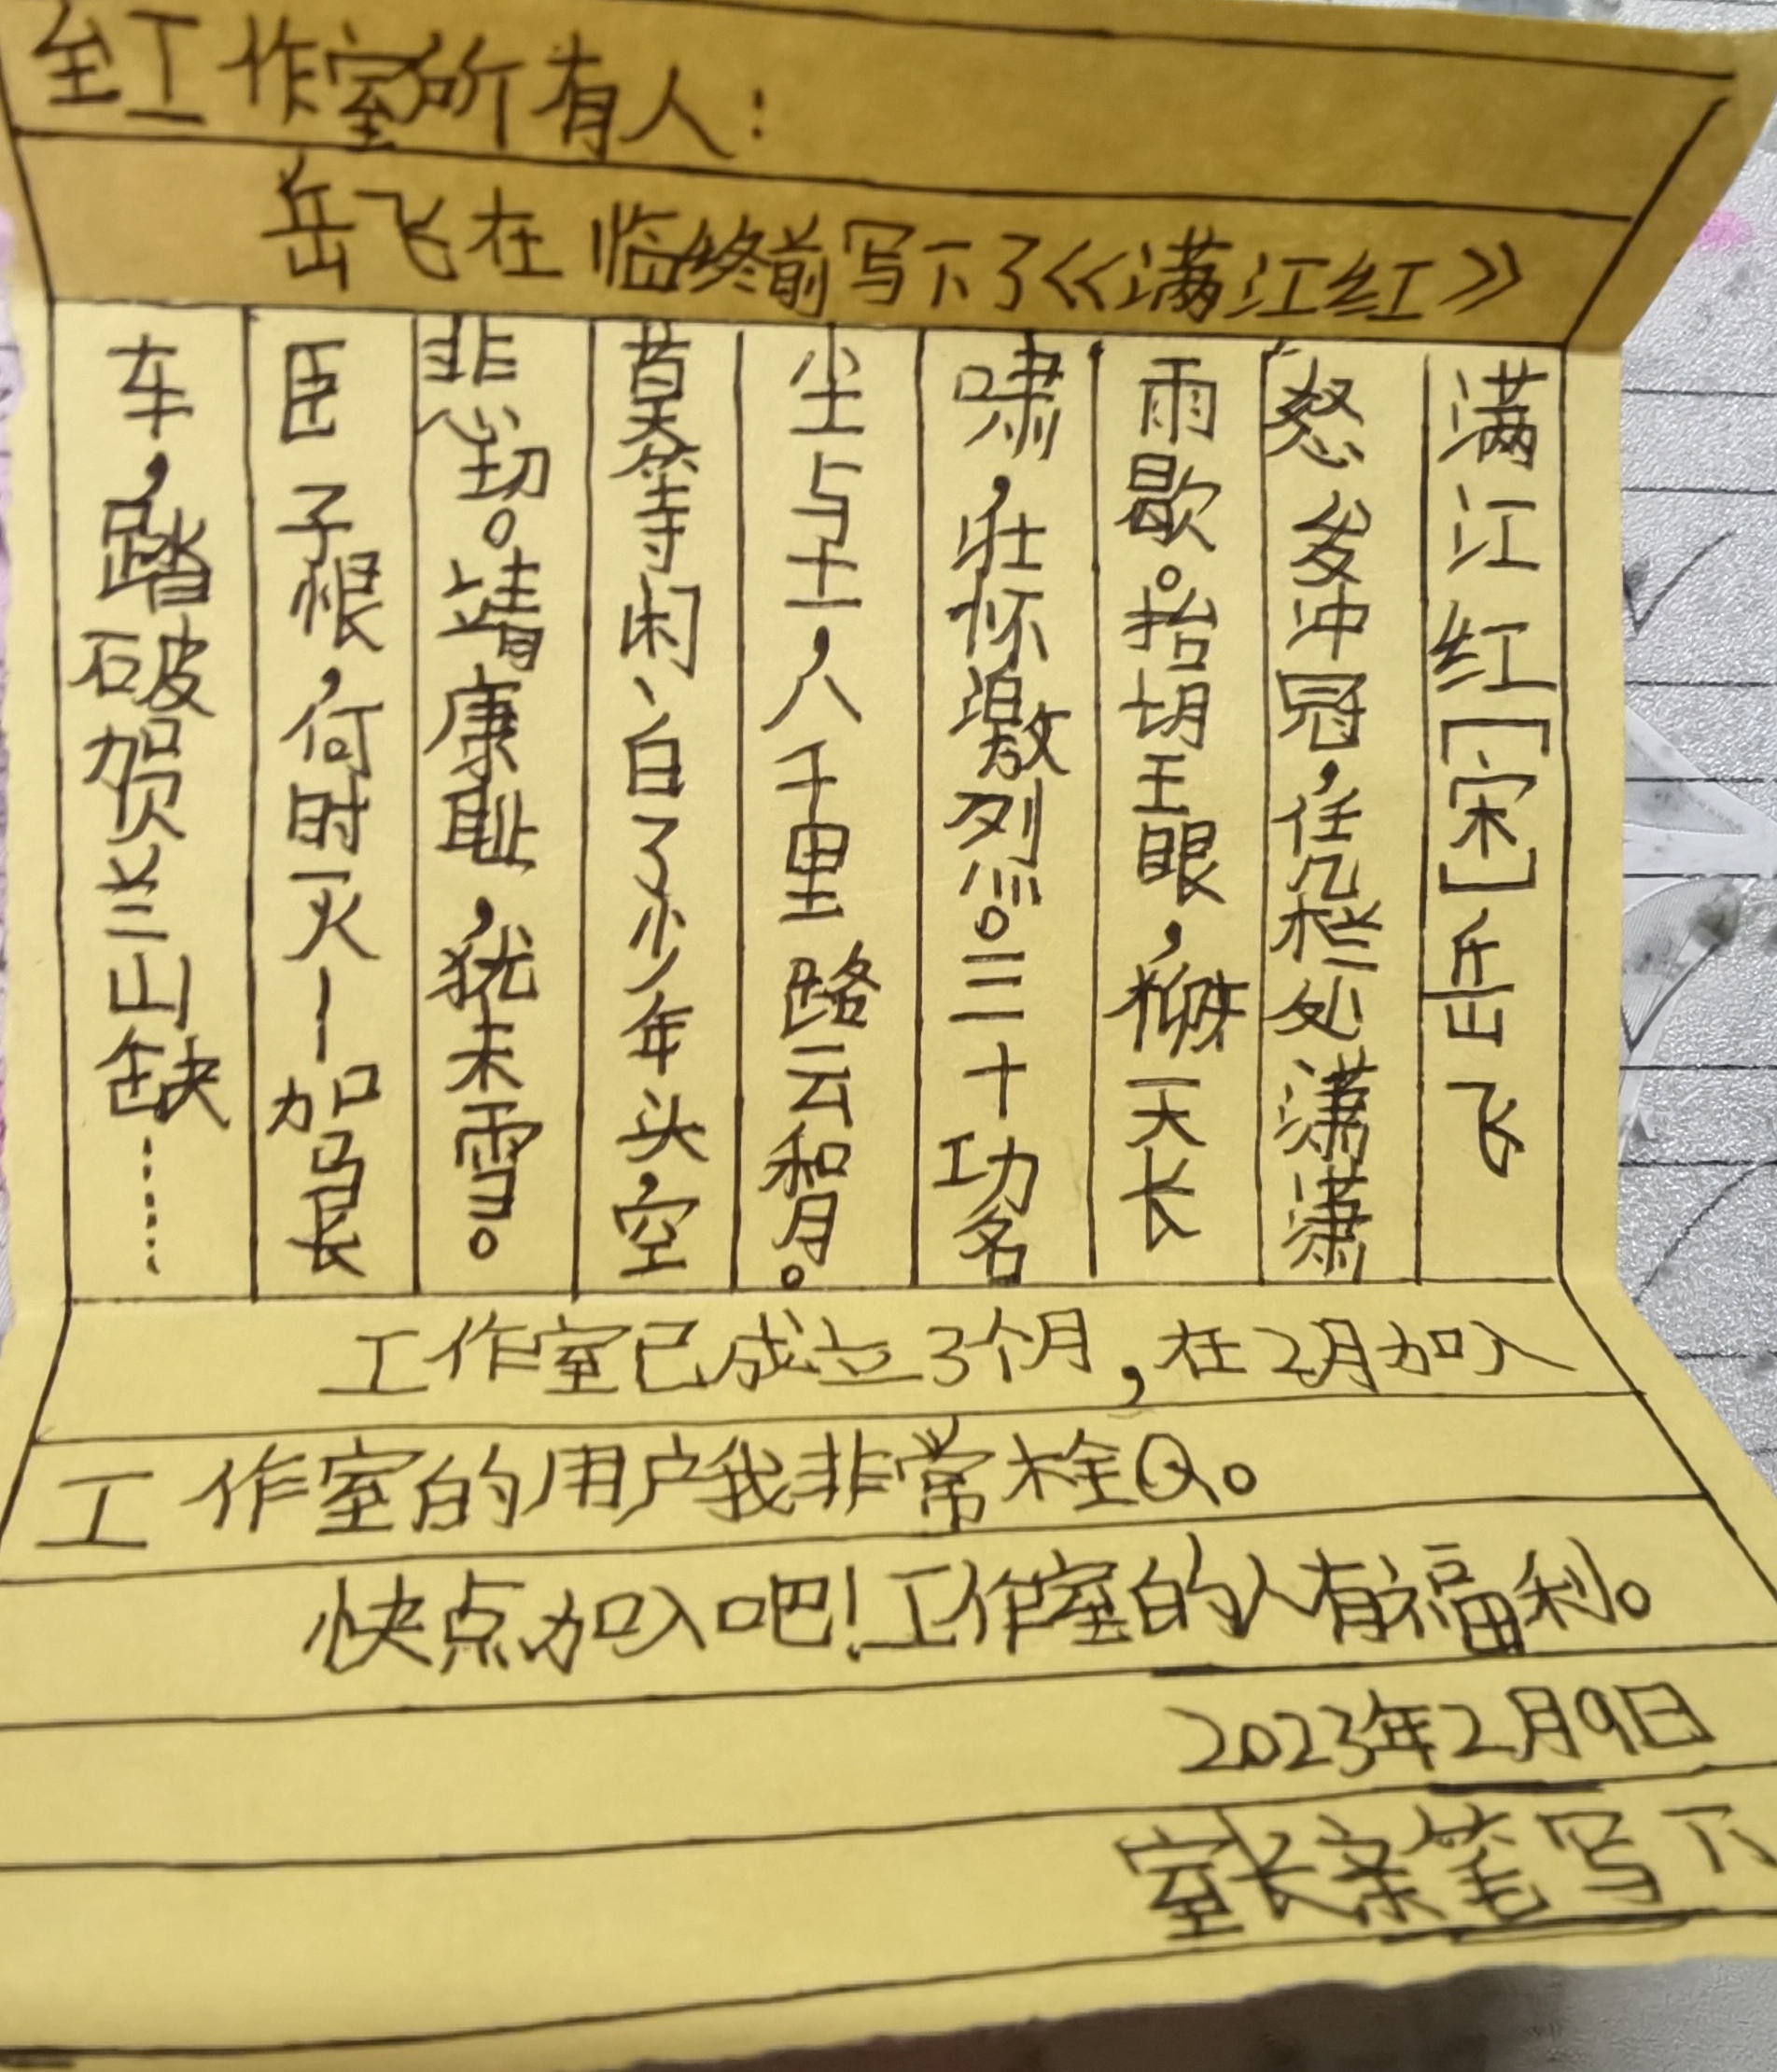 至工作室所有人：
岳飞在临终前写下了《满江红》
满江红[宋]岳飞
怒发冲冠，任凭栏处潇潇
雨歇。抬胡王眼，猕天长
啸，壮怀激烈。三十功名
尘与土，八千里路云和月。
莫等闲、白了少年头，空
悲切。靖康耻，犹未雪。
臣子恨，何时灭！驾长
车，踏破贺兰山缺……
工作室已成立3个月，在2月加入
工作室的用户我非常栓Q。
快点加入吧！工作室的人有福利。
2023年2月9日
室长亲笔写下